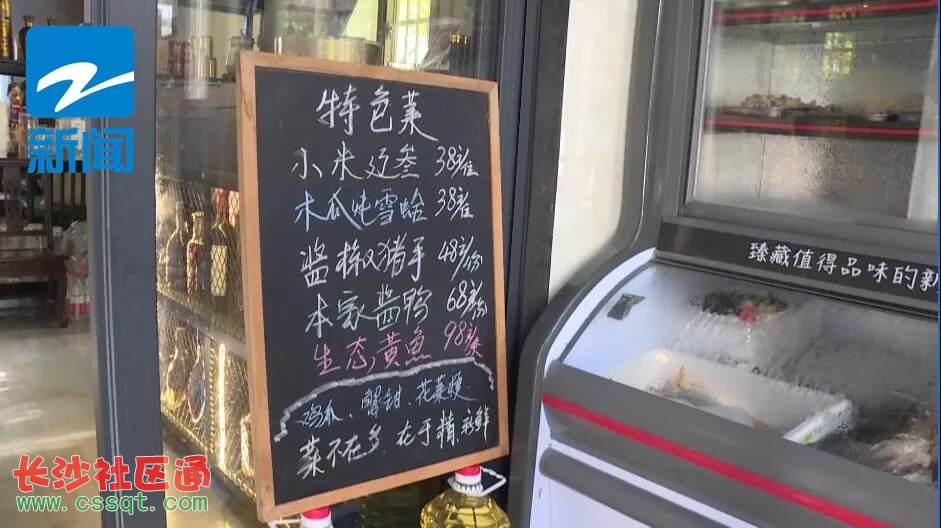 新闻
特色菜
小米辽参 38元/位
木瓜炖雪蛤 38元/位
酱椒猪手 48元/份
本家酱鸭 68元/份
生态黄鱼 98元/条
鸡爪、蟹钳、花菜梗
菜不在多 在于精 新鲜
臻藏值得品味的新
长沙社区通
www.cssqt.com